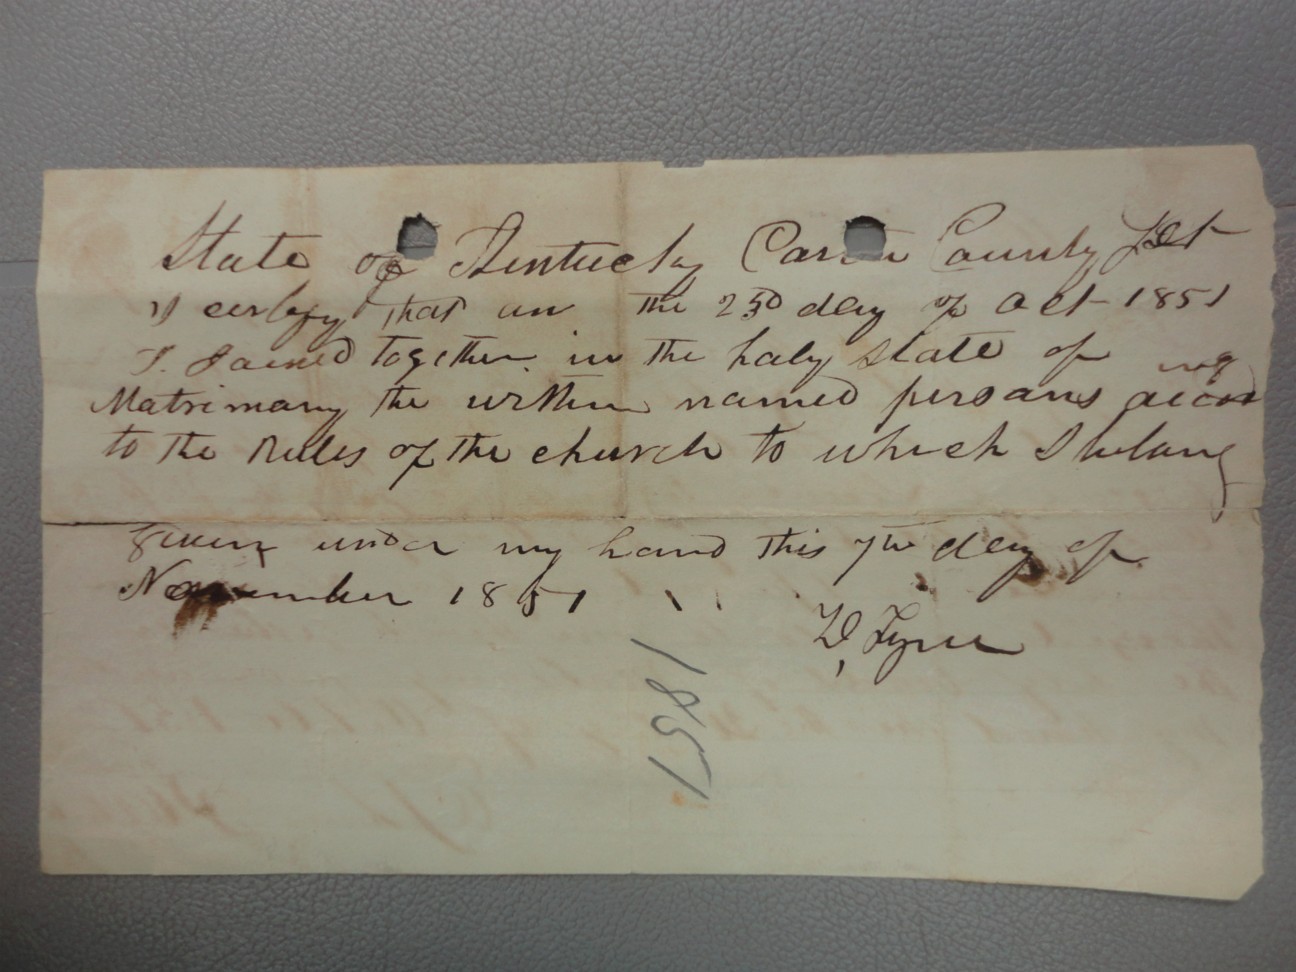 State of Kentucky Carter County Sct
I certify that on the 23D day of Oct 1851
I Joined together in the holy state of
Matrimony the within named persons accord
ing
to the Rules of the church to which I belong
given under my hand this 7th day of
November 1851
1851